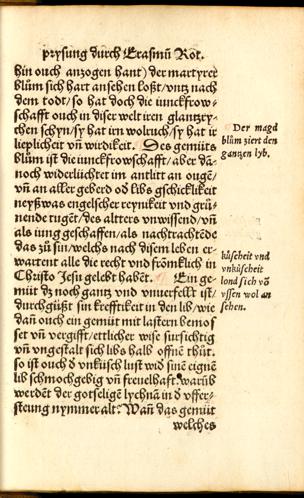 prysung durch Erasmū Rot.
hin ouch anzogen hant) der martyrer
blům sich hart ansehen loßt/vntz nach
dem todt/so hat doch die iunckfrow⸗
schafft ouch in diser welt iren glantz/ry⸗
chen schyn/sy hat irn wolruch/sy hat ir
lieplicheit vñ wirdikeit. Des gemüts
blům ist die iunckfrowschafft/aber dā⸗
noch widerlüchtet im antlitt an ouge/
vñ an aller geberd od libs gschicklikeit
neyßwas engelscher reynikeit vnd grü⸗
nende tuget/des altters vnwissend/vñ
als iung geschaffen/als nachtrachtēde
das zů sin/welchs nach disem leben er⸗
wartent alle die recht vnd frōmklich in
Christo Jesu gelebt habēt. Ein ge⸗
müt dz noch gantz vnd vnuerfellt ist/
durchgüßt sin krefftikeit in den lib/wie
dañ ouch ein gemüt mit lastern bemos
set vñ vergifft/ettlicher wise fürsichtig
vñ vngestalt sich libs halb offnē thůt.
so ist ouch d vnkūsch lust wid sinē eignē
lib schmochgebig vñ freuelhafft. warūb
werdēt der gotseligē lychnā in d vffer⸗
steung nymmer alt. Wañ das gemüt
welches
Der magd
blům ziert den
gantzen lyb.
kůscheit vnd
vnkůscheit
lond sich võ
vssen wol an
sehen.